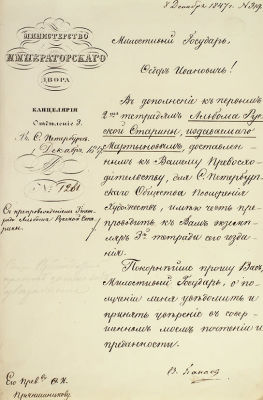 8 Декабря 1847 г. №
МИНИСТЕРСТВО
ИМПЕРАТОРСКАГО
ДВОРА
КАНЦЕЛЯРІЯ
Отдѣленіе 2.
Въ С. Петербургѣ.
Декабря 1847
№ 1281
Съ препровожденіемъ 3 тетради Альбома Русской Старины.
Милостивый Государь,
Ѳедоръ Ивановичъ!
Въ дополненіе къ первымъ
2мъ тетрадямъ Альбома Рус-
ской Старины, издаваемаго
Мартыновымъ, доставлен-
нымъ къ Вашему Превосхо-
дительству, для С. Петербург-
скаго Общества Поощренія
Художествъ, имѣю честь пре-
проводить къ Вамъ экзем-
пляръ 3й тетради сего изда-
нія.
Покорнѣйше прошу Васъ,
Милостивый Государь, о по-
лученіи меня увѣдомить и
принять увѣреніе въ совер-
шенномъ моемъ почтеніи и
преданности.
В. Панаевъ
Его Прев. Ѳ. И.
Прянишникову.